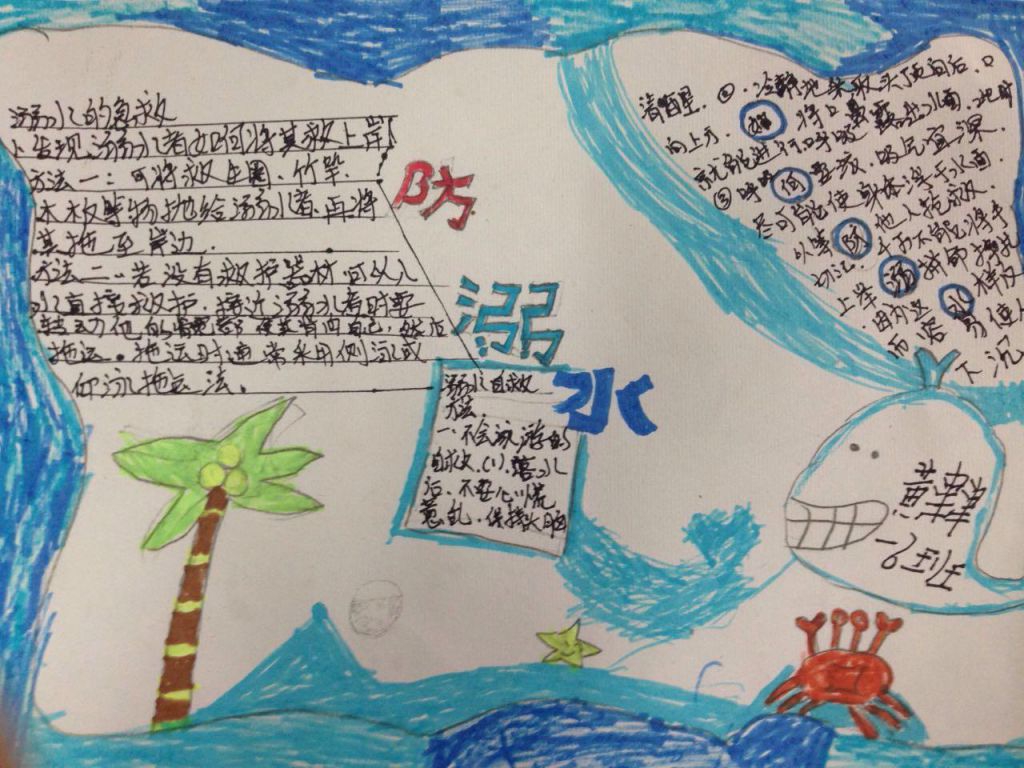 溺水的急救
1、发现溺水者如何将其救上岸
方法一：可将救生圈、竹竿、
木板等物抛给溺水者，再将
其拖至岸边．
方法二：若没有救护器材，可以入
水直接救护．接近溺水者时要
转动他的 使其背向自己，然后
拖运。拖运时通常采用侧泳或
仰泳拖运法。
防
溺
水
溺水自救
方法．
一．不会游泳的
自救．(1)．落水
后．不要心慌
意乱．保持头脑
清醒．②．冷静地采取头顶向后．口
向上方．将口鼻露出水面．此时
就能进行呼吸．
③呼 要浅．吸气宜深．
尽可能使身体浮于水面．
以等他人抢救．
切记：千万不能将手
上举 拼命挣扎
因为这样反
而容易使人
下沉
如
何
防
溺
水
黄
一6班